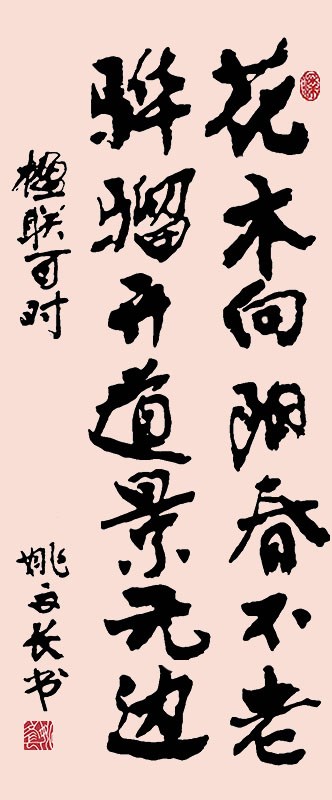 花木向阳春不老
骅骝开道景无边
楹联百对
姚文长书